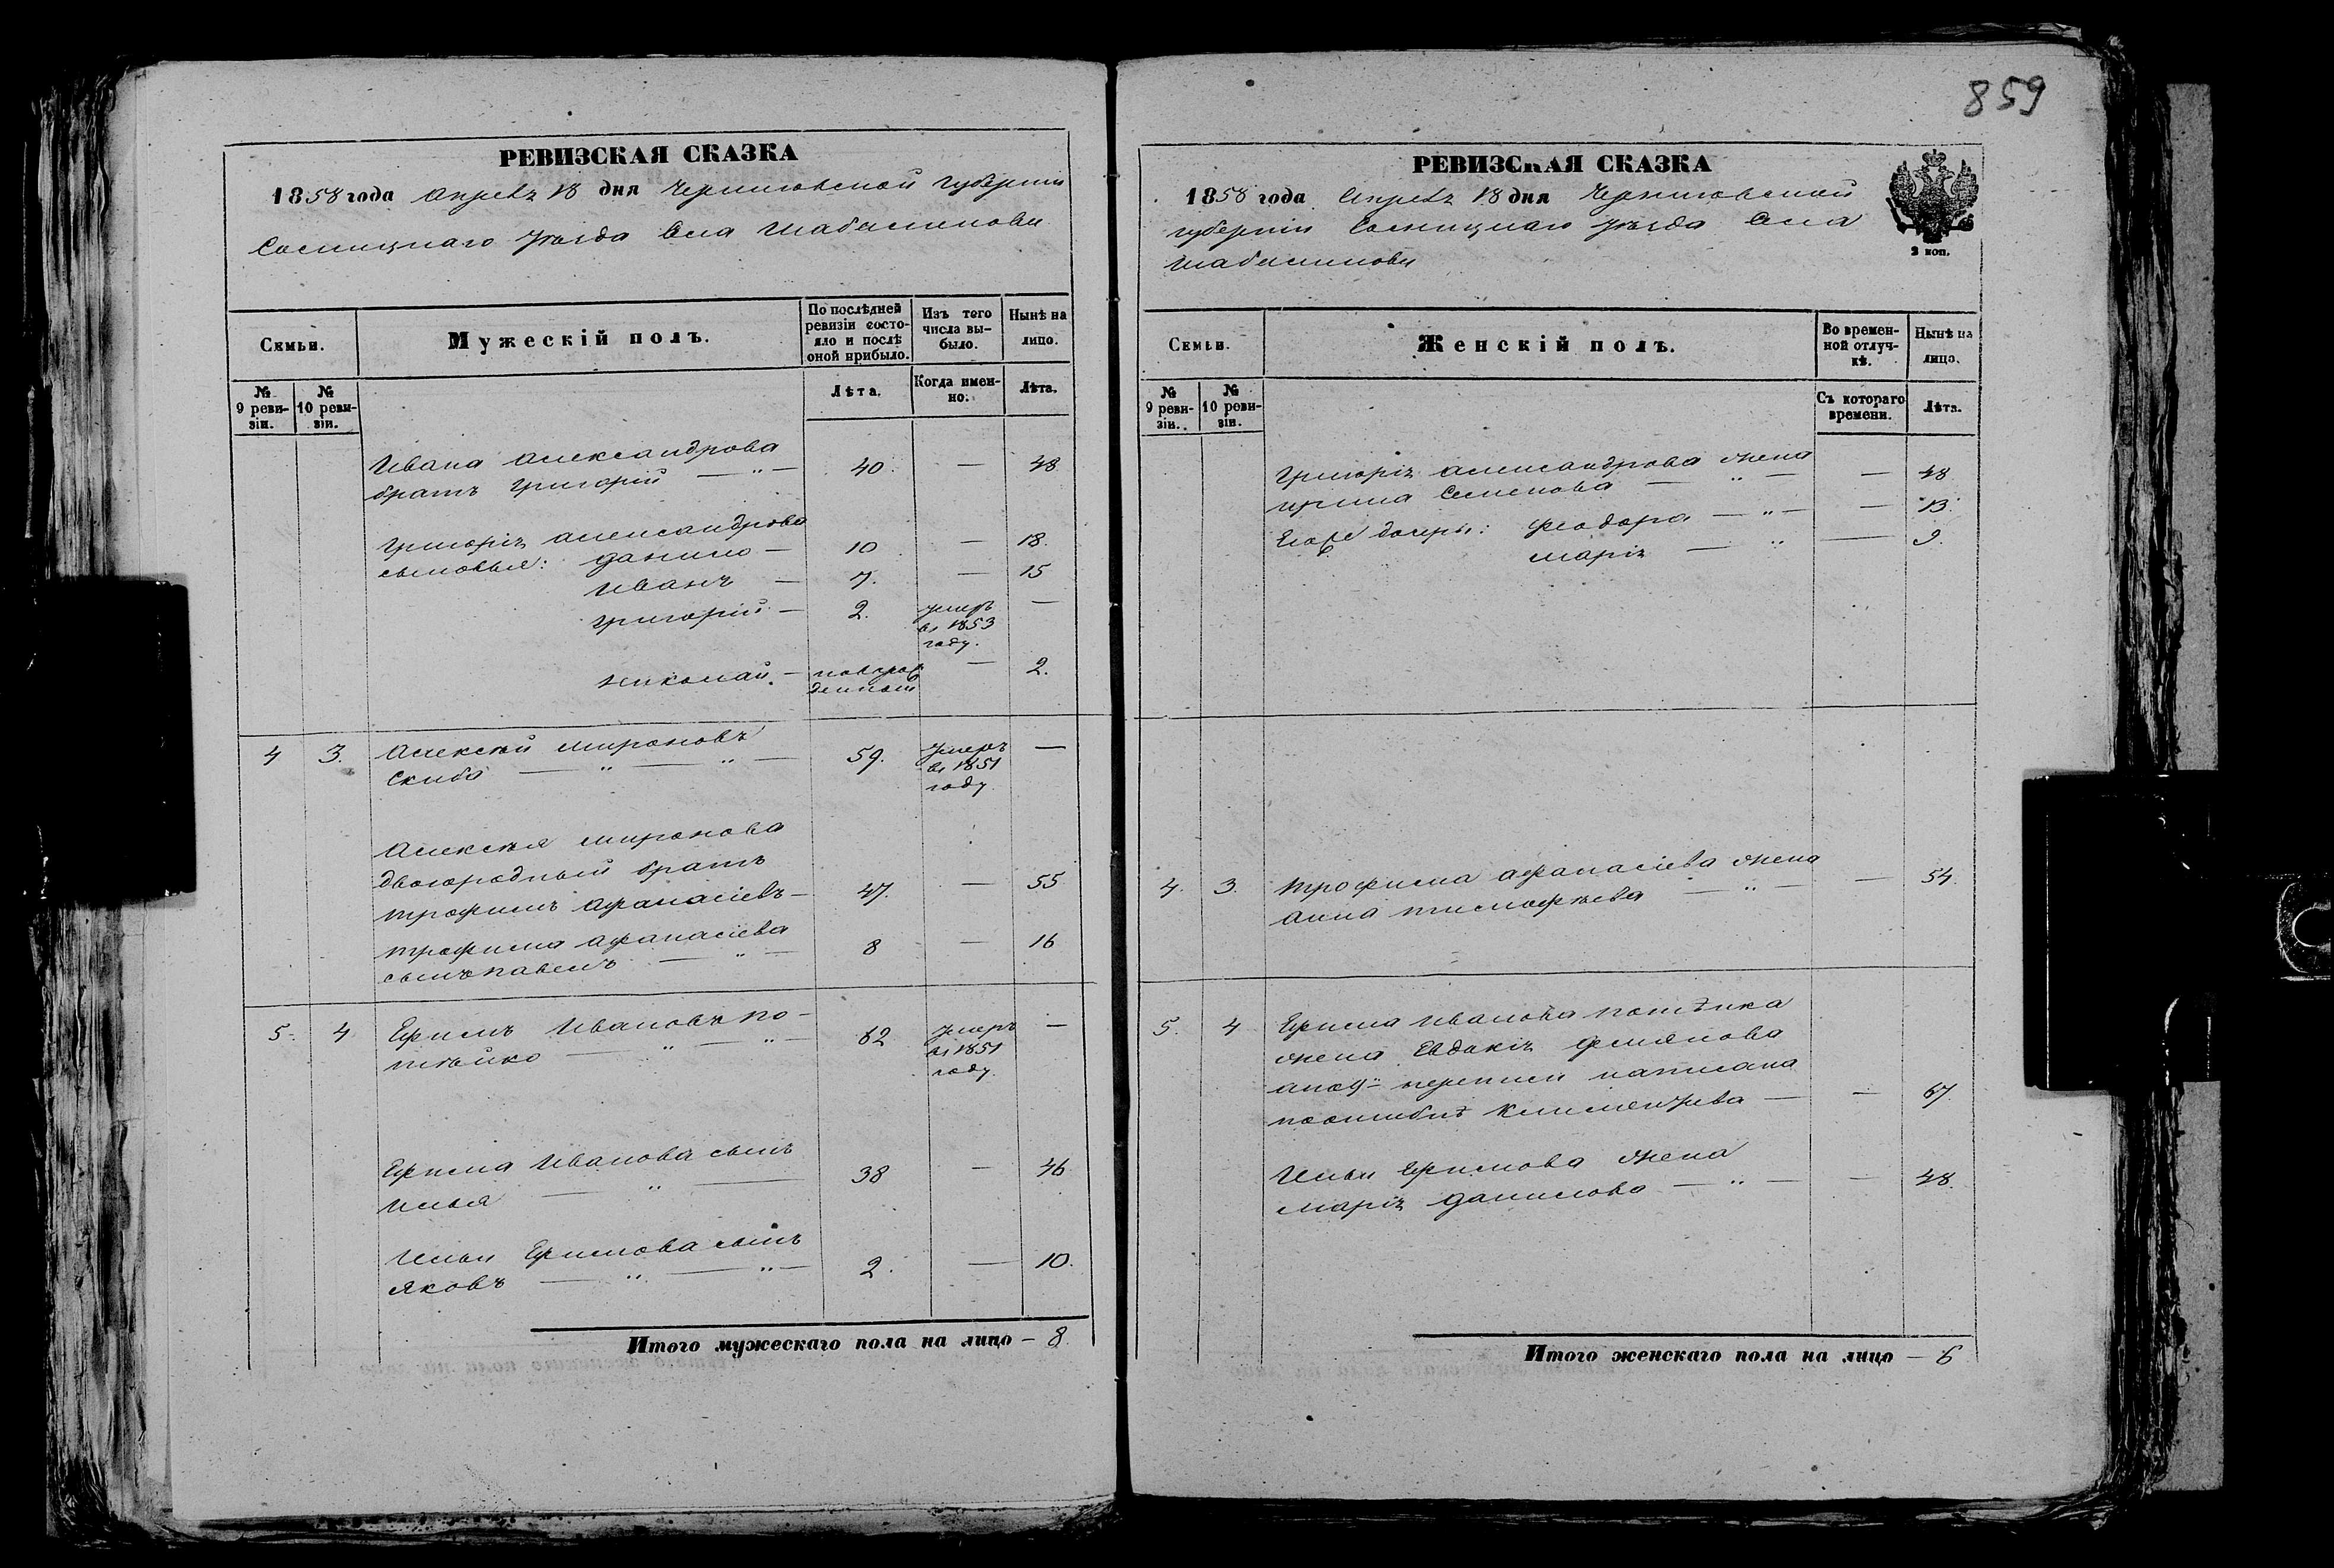 859
РЕВИЗСКАЯ СКАЗКА
1858 года Апреля 18 дня Черниговской губернии
Сосницкаго уѣзда Села Шабалинова
Семьи.
Мужескій полъ.
По послѣдней ревизіи состояло и послѣ оной прибыло.
Изъ того числа выбыло.
Нынѣ на лицо.
№ 9 ревизіи.
№ 10 ревизіи.
Лѣта.
Когда именно.
Лѣта.
Ивана Александрова
братъ Григорій — " — 40. — 48
Григорія Александрова
сыновья: Данило — 10 — 18.
Иванъ — 7. — 15
Григорій — 2. умеръ в 1853 году. —
Николай. — новорожденный — 2.
4 3. Алексѣй Мироновъ
Скиба — " — " — 59. умеръ в 1851 году —
Алексѣя Миронова
двоюродный братъ
Трофимъ Афанасіевъ — 47. — 55
Трофима Афанасіева
сынъ Павелъ — " — 8 — 16
5. 4 Ефимъ Ивановъ По-
тѣйко — " — " — 62 умеръ в 1851 году. —
Ефима Иванова сынъ
Илья — " — 38 — 46
Ильи Ефимова сынъ
Яковъ — " — " — 2. — 10.
Итого мужескаго пола на лицо — 8
РЕВИЗСКАЯ СКАЗКА
1858 года Апреля 18 дня Черниговской
губернии Сосницкаго уѣзда Села
Шабалинова
2 коп.
Семьи.
Женскій полъ.
Во временной отлучкѣ.
Нынѣ на лицо.
№ 9 ревизіи.
№ 10 ревизіи.
Съ котораго времени.
Лѣта.
Григорія Александрова жена
Ирина Семенова — " — — 48
дочери: Феодора — " — — 13.
Марія — " — 9.
4. 3. Трофима Афанасіева жена
Анна Тимофѣева — " — — 54.
5. 4 Ефима Иванова
жена Евдокія
переписи написана
поошибкѣ Климентіева — — 67.
Ильи Ефимова жена
Марія Данилова — " — — 48.
Итого женскаго пола на лицо — 6